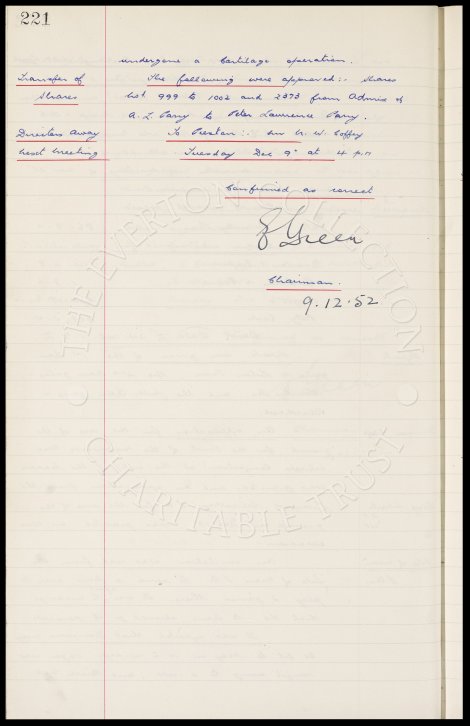 221
undergone a cartilage operation.
Transfer of The following were approved:- Shares
Shares Nos 999 to 1002 and 2373 from Admins of
A. L. Parry to Peter Lawrence Parry.
Directors Away To Preston:- Mr N. W. Coffey
Next Meeting Tuesday Dec 9th at 4 p.m
Confirmed as correct
Green
Chairman.
9.12.52
THE EVERTON COLLECTION
CHARITABLE TRUST